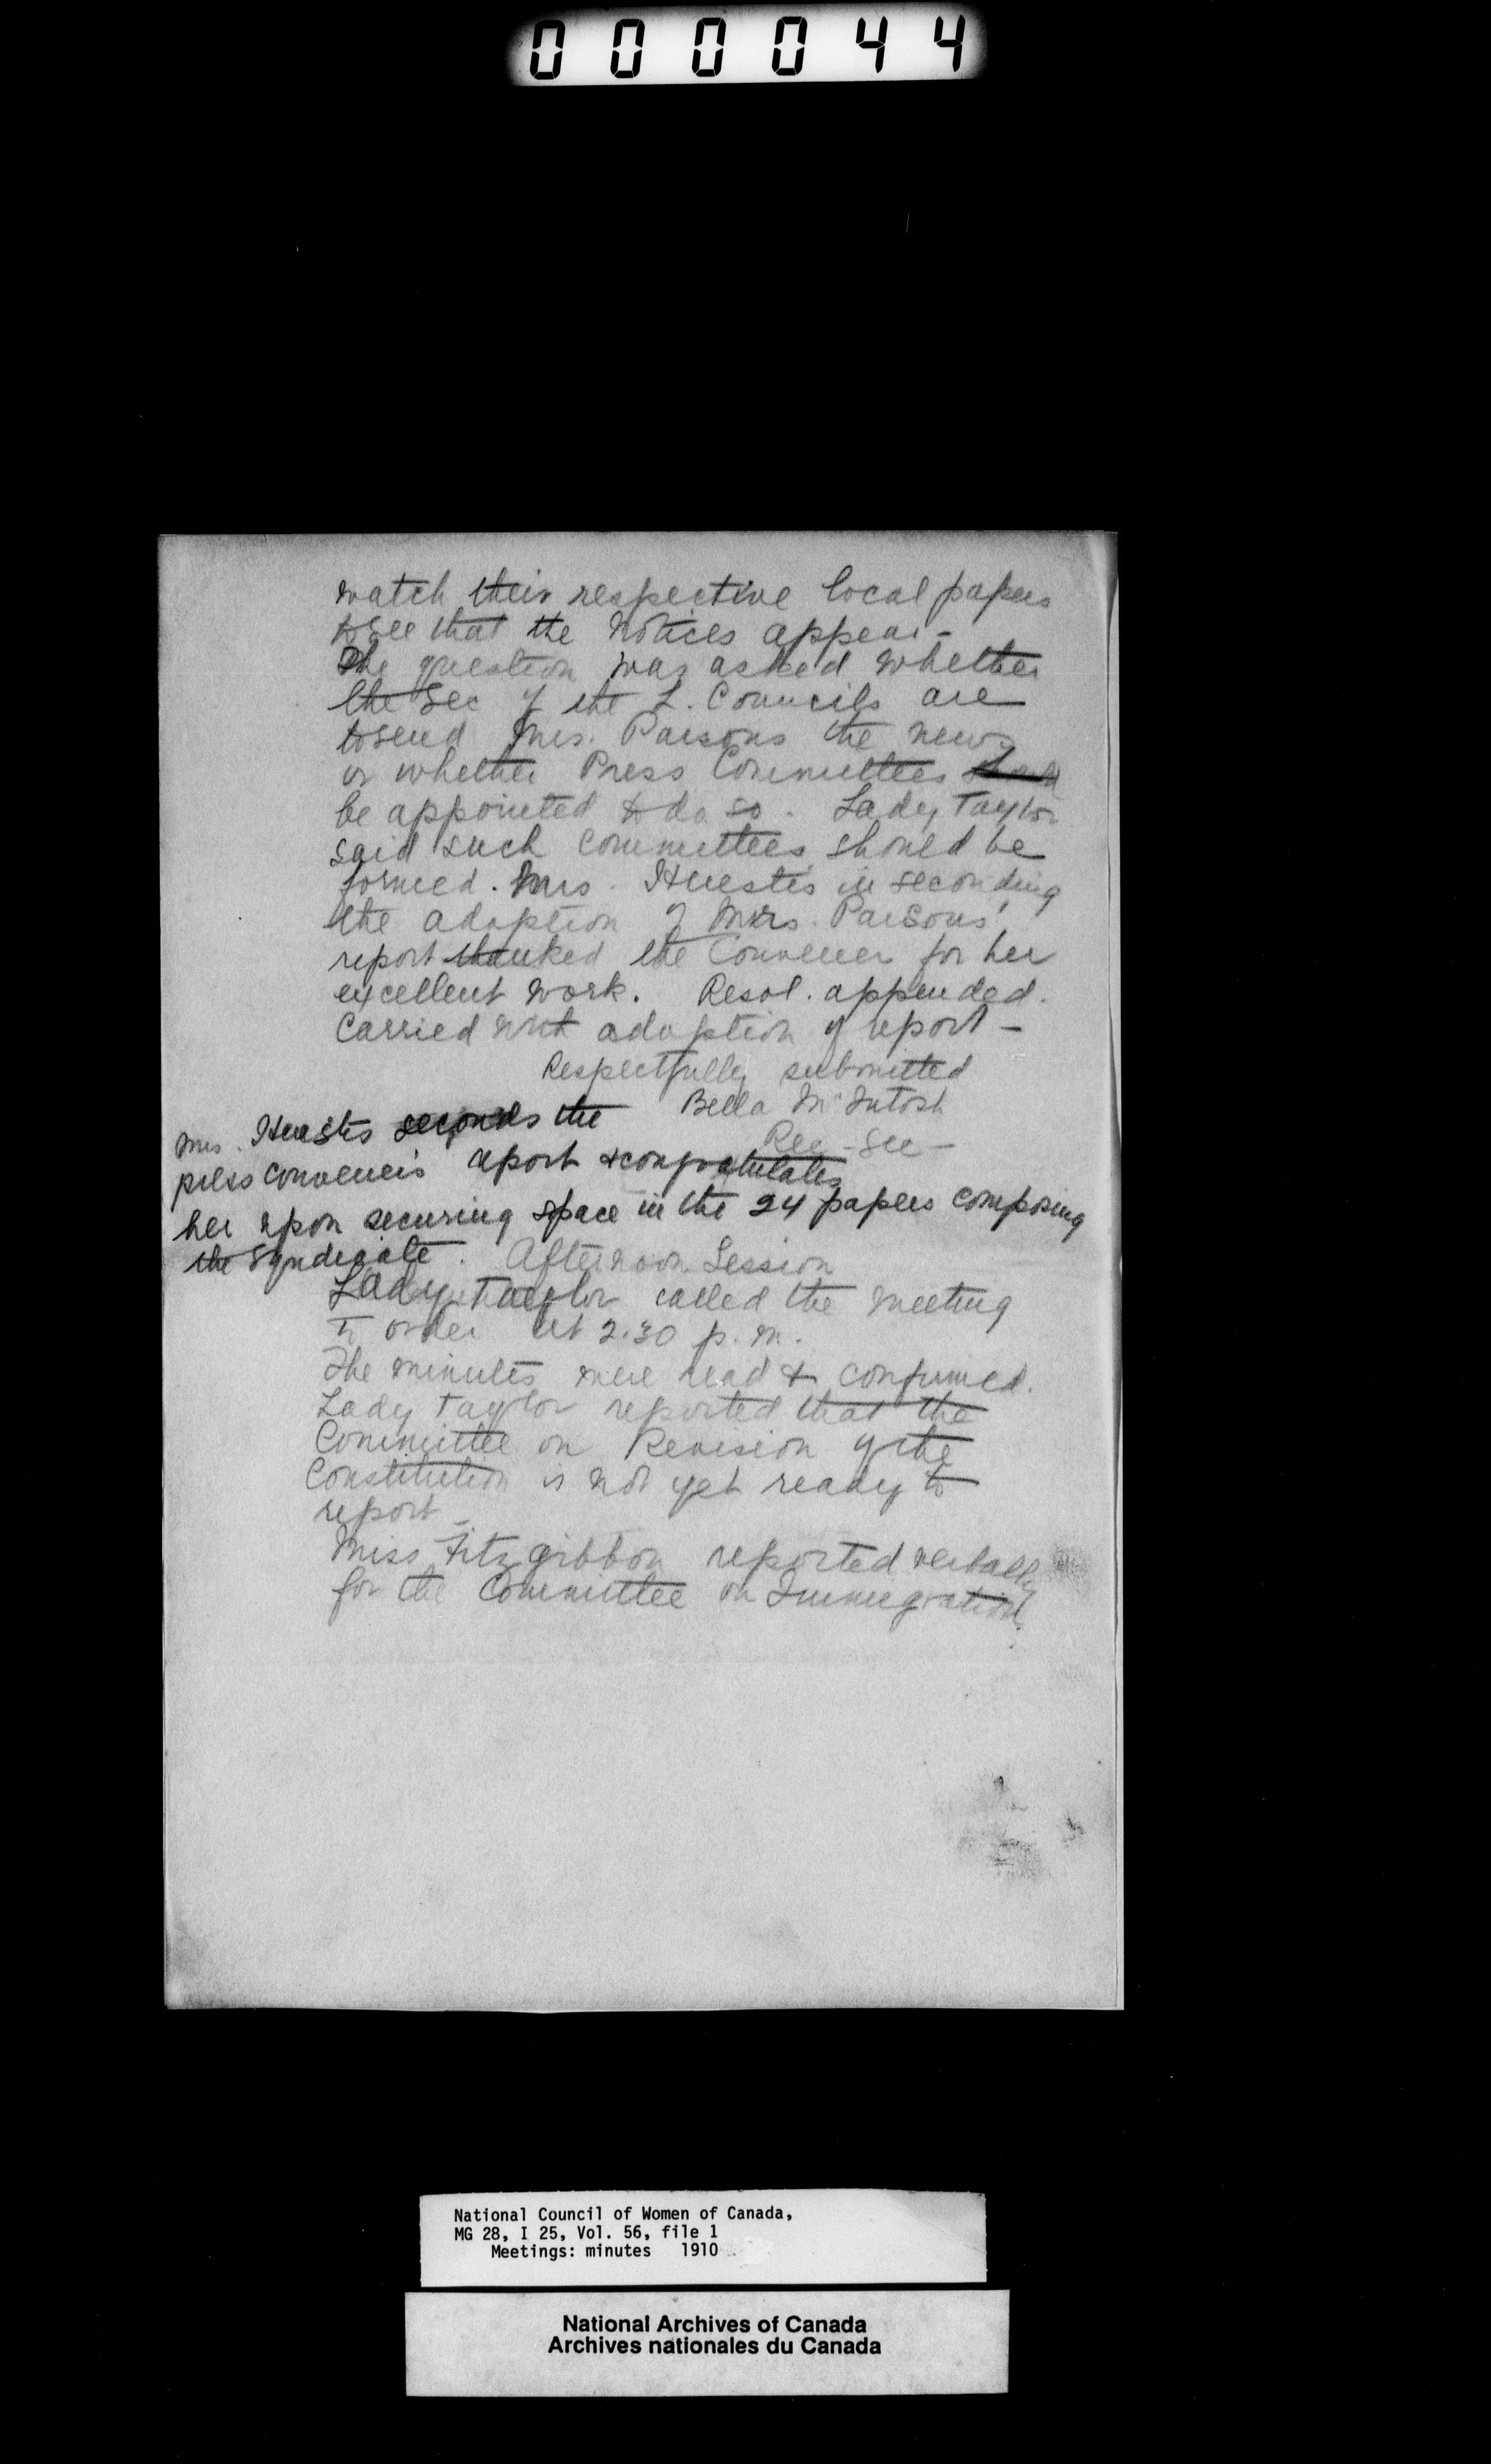 000044
watch their respective local papers
to see that the notices appear -
The question was asked whether
the Sec of the L. Councils are
to send Mrs. Parsons the news
or whether Press Committees
be appointed to do so. Lady Taylor
said such committees should be
formed. Mrs. Huestis in seconding
the adoption of Mrs. Parsons'
report thanked the Convener for her
excellent work. Resol. appended.
Carried with adoption of report -
Respectfully submitted
Bella McIntosh
Rec-Sec-
Mrs. Huestis seconds the
press convener's report & congratulates
her upon securing space in the 24 papers composing
the Syndicate.
Afternoon Session
Lady Taylor called the meeting
to order at 2.30 p.m.
The minutes were read & confirmed.
Lady Taylor reported that the
Committee on Revision of the
Constitution is not yet ready to
report -
Miss Fitzgibbon reported verbally
for the Committee on Immigration.
National Council of Women of Canada,
MG 28, I 25, Vol. 56, file 1
Meetings: minutes 1910
National Archives of Canada
Archives nationales du Canada